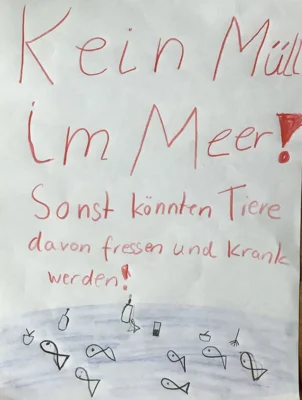 Kein Müll
im Meer!
Sonst könnten Tiere
davon fressen und krank
werden!